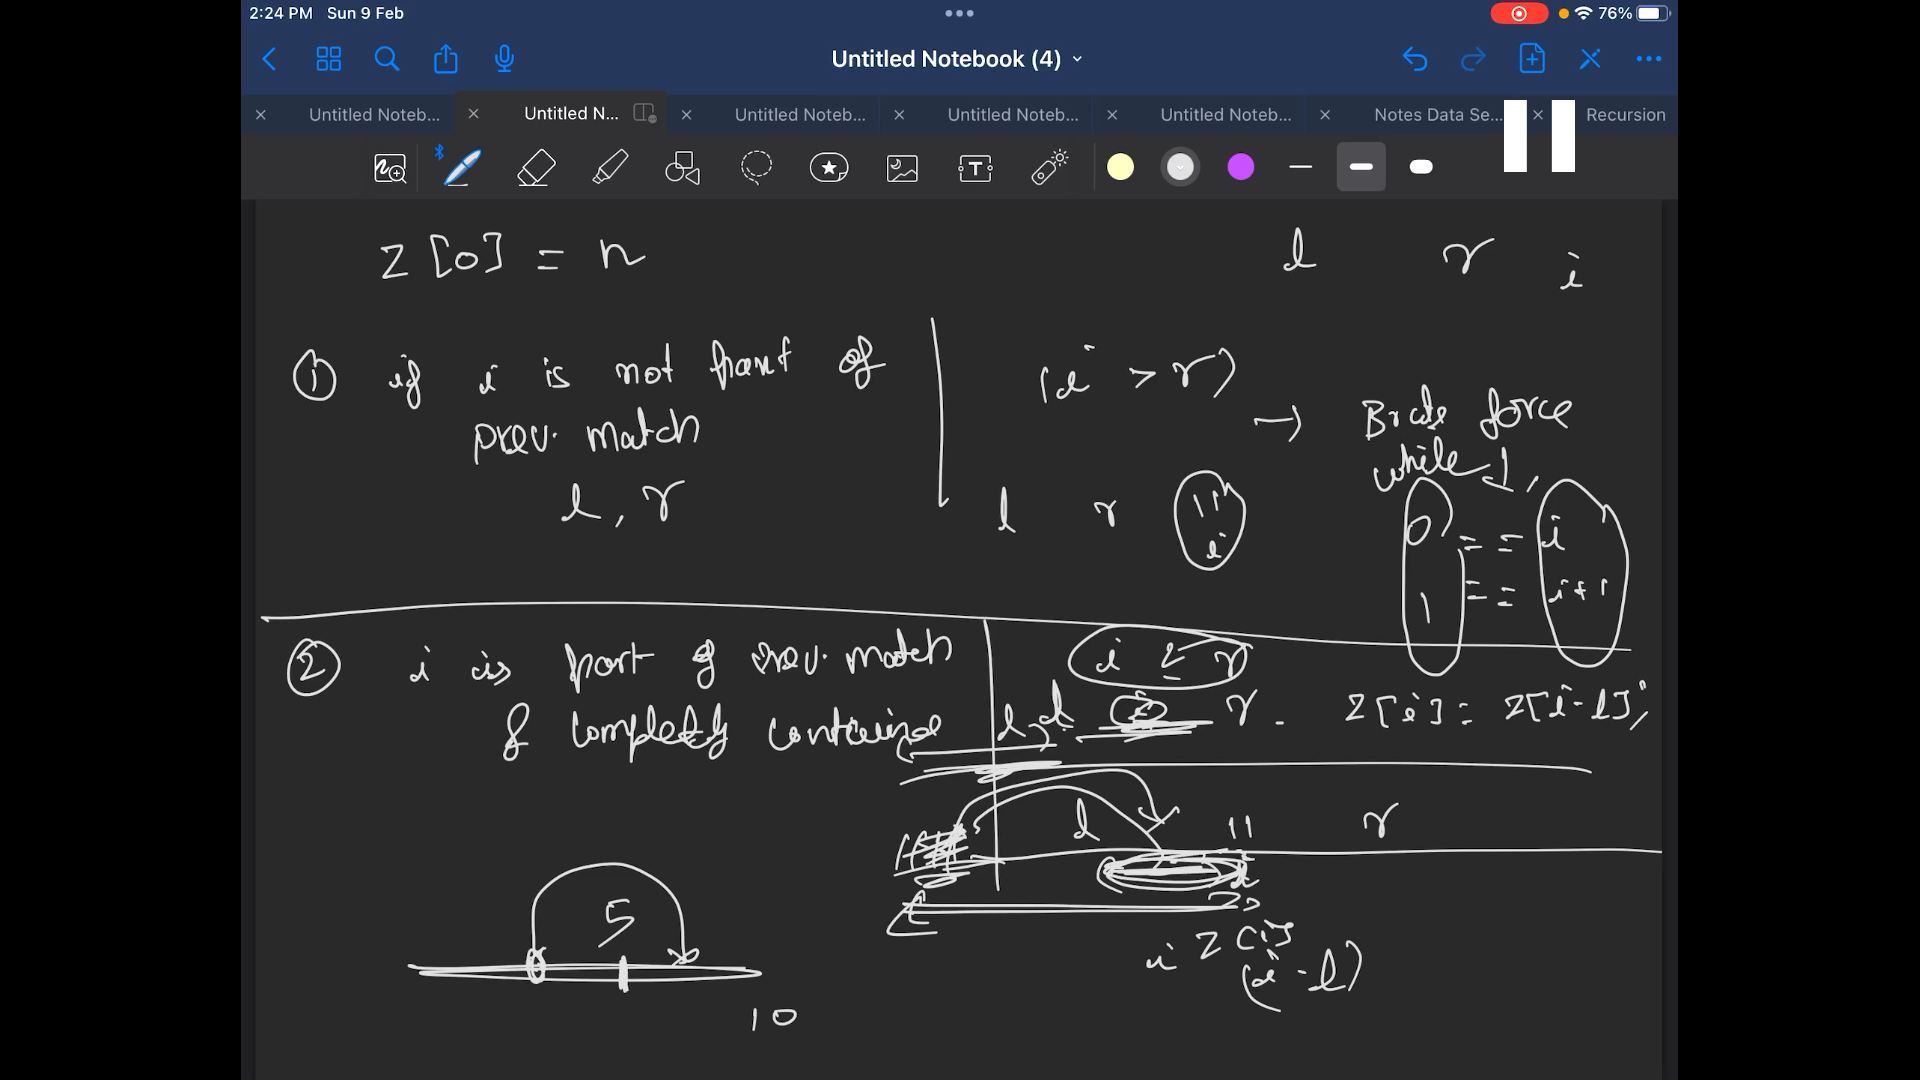 2:24 PM Sun 9 Feb
76%
Untitled Notebook (4)
Untitled Noteb...
Untitled N...
Untitled Noteb...
Untitled Noteb...
Untitled Noteb...
Notes Data Se...
Recursion
T
z [0] = n
l r i
① if i is not part of
prev. match
l, r
(i > r)
→ Brute force
while
l r i
0 == i
1 == i+1
② i is part of prev. match
& completely
i ≤ r
l i r
z[i] = z[i-l];
l r
i z[i]
(i-l)
5
10